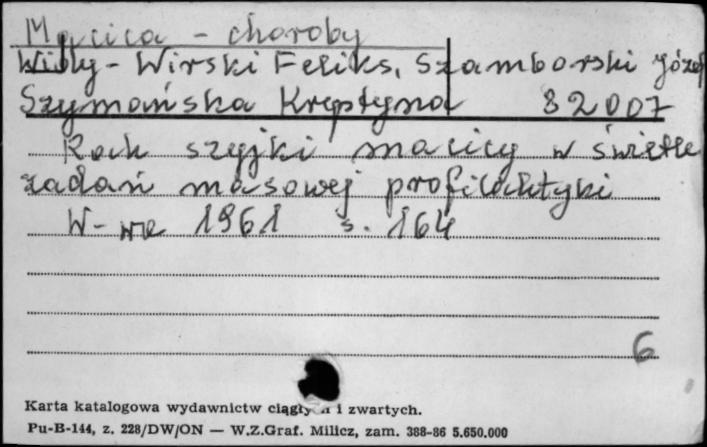 Macica - choroby
Widy - Wirski Feliks, Szamborski Józef
Szymańska Krystyna 82007
Rak szyjki macicy w świetle
zadań masowej profilaktyki
W-wa 1961 s. 164
6
Karta katalogowa wydawnictw ciągłych i zwartych.
Pu-B-144, z. 228/DW/ON — W.Z.Graf. Milicz, zam. 388-86 5.650.000